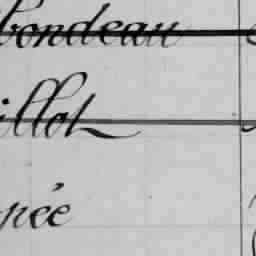 bondeau
illot
rée